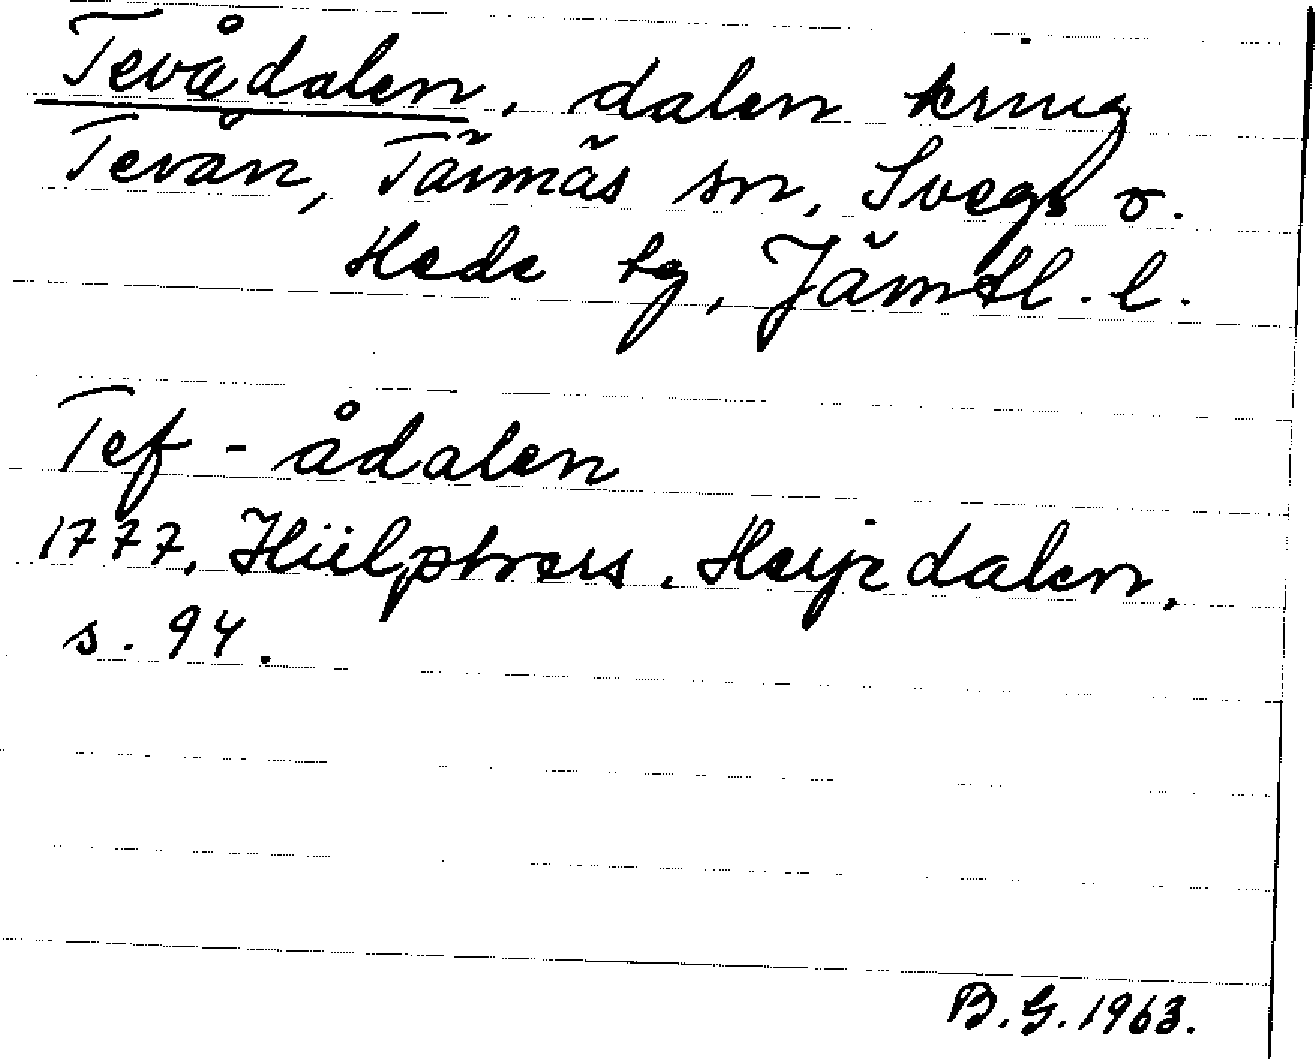 Tevådalen, dalen kring
Tevån, Tännäs sn, Svegs o.
Hede tg, Jämtl. l.
Tef - ådalen
1777, Hülphers. Herjedalen,
s. 94.
B. G. 1963.